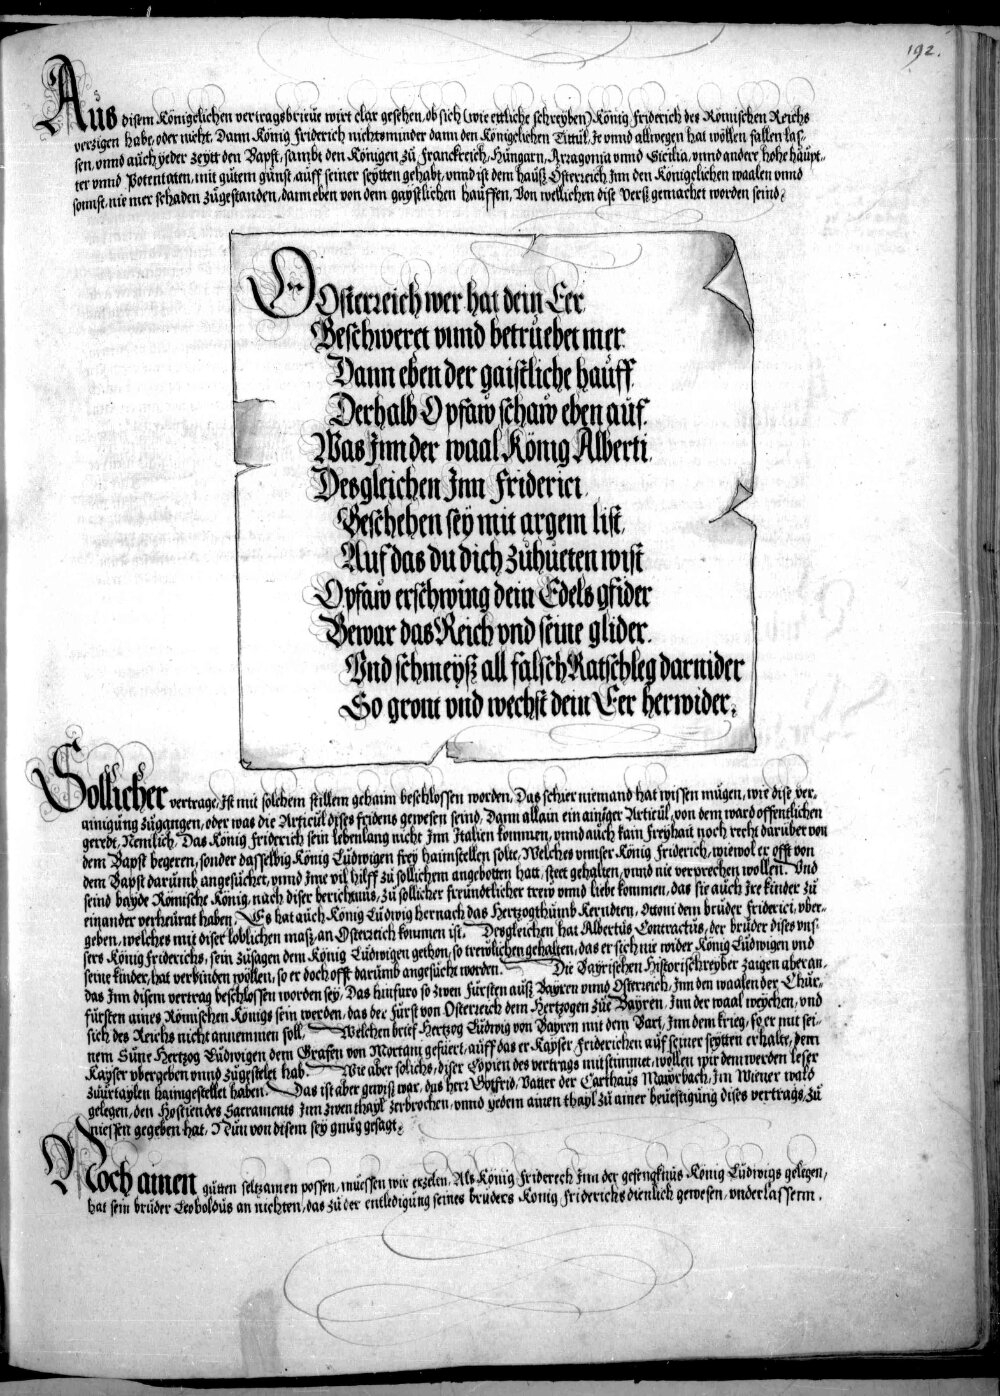 192.
Aus disem Königelichen vertragsbrieue wirt clar gesehen, ob sich (wie ettliche schreyben) König Friderich des Römischen Reichs
verzigen habe, oder nicht, Dann König Friderich nichtsminder dann den Königelichen Tittul, Je vnnd allwegen hat wöllen fallen las-
sen, vnnd auch yeder zeytt den Bapst, sambt den Königen zu Franckreich, Hungarn, Arragonia vnnd Sicilia, vnnd andere hohe häupt-
ter vnnd Potentaten, mit gutem gunst, auff seiner seytten gehabt, vnnd ist dem hauß Österreich Inn den Königelichen waalen vnnd
sonnst, nie mer schaden zugestanden, dann eben von dem gaystlichen hauffen, Von wellichen dise Verß gemachet worden seind.
O Osterreich wer hat dein Eer
Beschweret vnnd betruebet mer.
Dann eben der gaistliche hauff.
Derhalb O pfaw schaw eben auf.
Was Inn der waal König Alberti.
Desgleichen Inn Friderici.
Beschehen sey mit argem list.
Auf das du dich zuhueten wist
O pfaw erschwing dein Edels gfider
Bewar das Reich vnd seine glider.
Vnd schmeyß all falsch Ratschleg darnider
So gront vnd wechst dein Eer herwider.
Sollicher vertrage, Ist mit solchem stillem gehaim beschlossen worden, Das schier niemand hat wissen mügen, wie dise ver-
ainigung zugangen, oder was die Articul dises fridens gewesen seind, Dann allain ein ainiger Articul, von dem ward offentlichen
geredt, Nemlich, Das König Friderich sein lebenlang nicht Inn Italien kommen, vnnd auch kain Freyhait noch recht darüber von
dem Bapst begeren, sonder dasselbig König Ludwigen frey haimstellen solte, Welches vnnser König Friderich, wiewol er offt von
dem Bapst darumb angesuchet, vnnd Ime vil hilff zu sollichem angebotten hatt, steet gehalten, vnnd nie verprechen wollen. Vnd
seind bayde Römische König, nach diser berichtnus, zu sollicher freundtlicher trew vnnd liebe kommen, das sie auch Ire kinder zu
einander verheurat haben. Es hat auch König Ludwig hernach das Hertzogthumb Kerndten, Ottoni dem bruder Friderici, vber-
geben, welches mit diser loblichen maß, an Osterreich kommen ist. Desgleichen hat Albertus Contractus, der bruder dises vns-
sers König Friderichs, sein zusagen dem König Ludwigen gethon, so trewlichen gehalten, das er sich nie wider König Ludwigen vnd
seine kinder, hat verbinden wöllen, so er doch offt darumb angesucht worden. Die Bayrischen Historischreyber zaigen aber an,
das Inn disem vertrag beschlossen worden sey, Das hinfuro so zwen Fürsten auß Bayren vnnd Osterreich, Inn den waalen der Chur-
fürsten aines Römischen Königs sein werden, das der Fürst von Osterreich dem Hertzogen zue Bayren, Inn der waal weychen, vnd
sich des Reichs nicht annemmen soll. Welchen brief Hertzog Ludwig von Bayren mit dem Bart, Inn dem krieg, so er mit sei-
nem Sune Hertzog Ludwigen dem Grafen von Mortani gefuert, auff das er Kayser Friderichen auf seiner seytten erhalte, dem
Kayser vbergeben vnnd zugestelet hab. Wie aber solichs, diser Copien des vertrags mitstimmet, wollen wir dem werden leser
zuurtaylen haimgestellet haben. Das ist aber gewiß war, das herr Gotfrid, Vatter der Carthaus Mawrbach, Im Wiener wald
gelegen, den Hostien des Sacraments Inn zwen thayl zerbrochen, vnnd yedem ainen thayl zu ainer beuestigung dises vertrags, zu
niessen gegeben hat, Nun von disem sey gnug gesagt.
Noch ainen gutten seltzamen possen, muessen wir erzelen, Als König Friderech Inn der gefengknus König Ludwigs gelegen,
hat sein bruder Leopoldus an nichten, das zu der entledigung seines bruders König Friderichs dienlich gewesen, vnderlassenn.